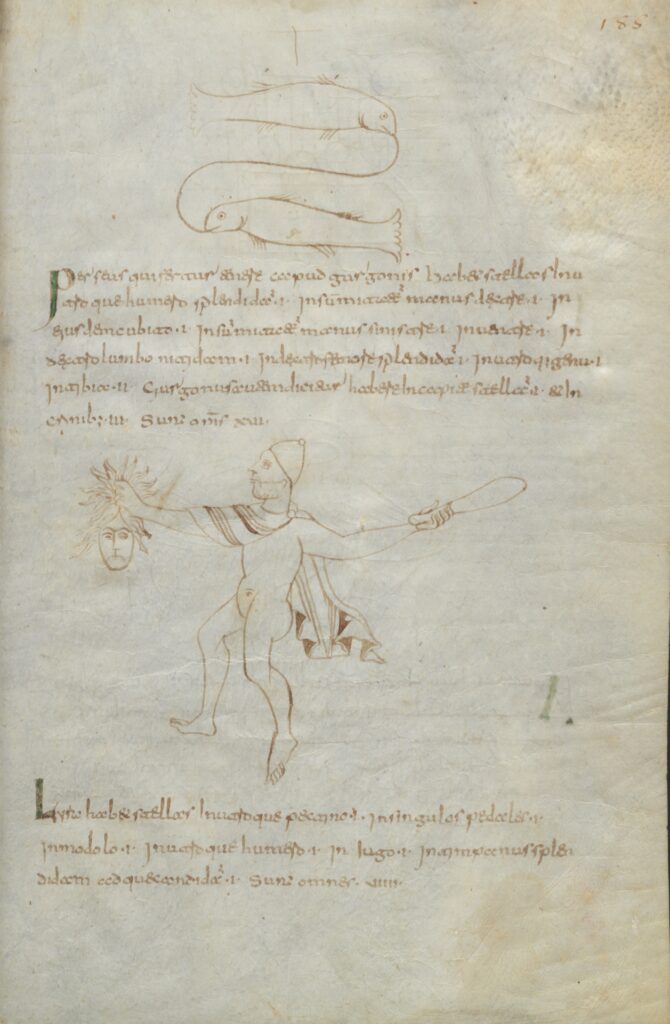 188
Perseus qui fertur tenere caput gurgonis habet stellas Inu
troque humero splendida·I· Insummitate manus dextre·I· In
eiusdem cubito·I· Insummitate manus sinistre·I· Inventre·I· In
dextro lumbo nitidam·I· Indextro femore splendida·I· Inutroq genu·I
Intibia·II· Gurgonis habere Incapite stella·I· et In
crinib; III· Sunt oms XVII
Lyra habet stellas Inutroque pectino·I· Insingulos pedales·I·
Inmodolo·I· Inutroque humero·I· In Iugo·I· Intimpanus splen
didam adque candida·I· Sunt omnes· VIIII·